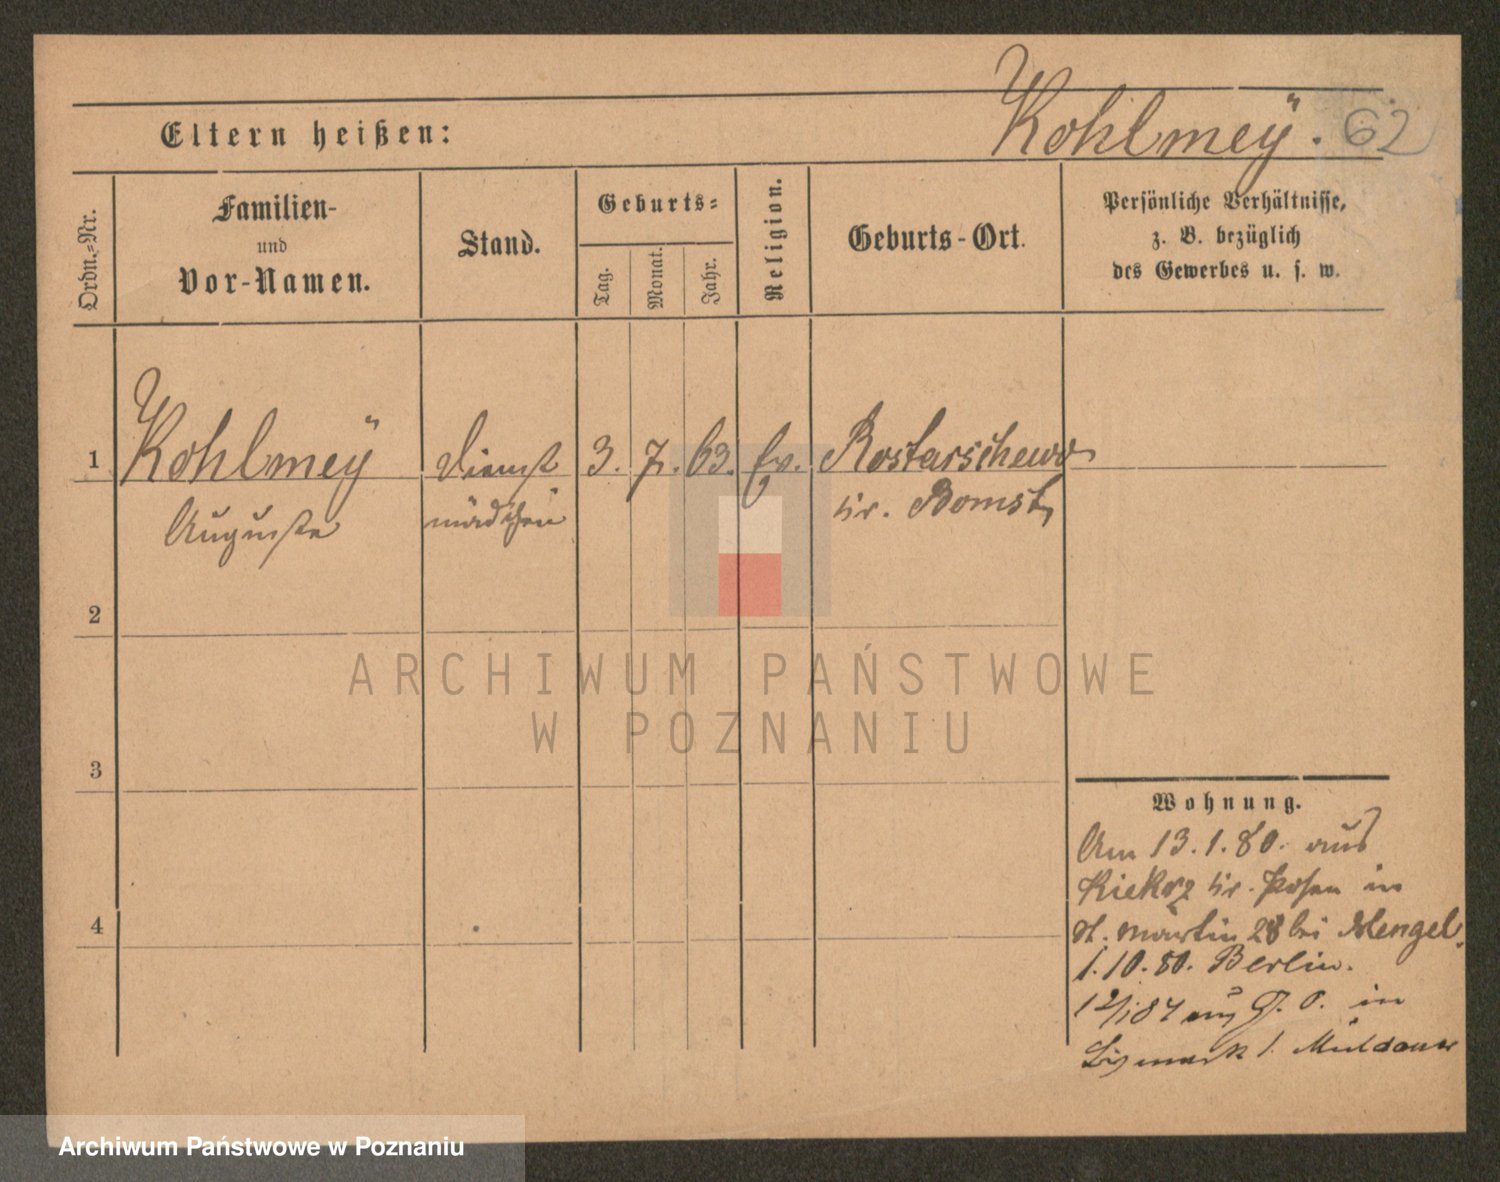 Kohlmeÿ. 62
Eltern heißen:
Ordn.=Nr.
Familien-
und
Vor-Namen.
Stand.
Geburts=
Tag.
Monat.
Jahr.
Religion.
Geburts-Ort.
Persönliche Verhältnisse,
z. B. bezüglich
des Gewerbes u. s. w.
1 Kohlmeÿ Dienst 3. 7. 63. Ev. Rostarschewo
Auguste mädchen Kr. Bomst
2
3
4
Wohnung.
Am 13.1.80. aus
Kiekrz Kr. Posen in
St. Martin 28 bei Mengel.
1.10.80. Berlin.
12/1 84 aus G. O. in
Bismark 1. Muldauer
ARCHIWUM PAŃSTWOWE
W POZNANIU
Archiwum Państwowe w Poznaniu